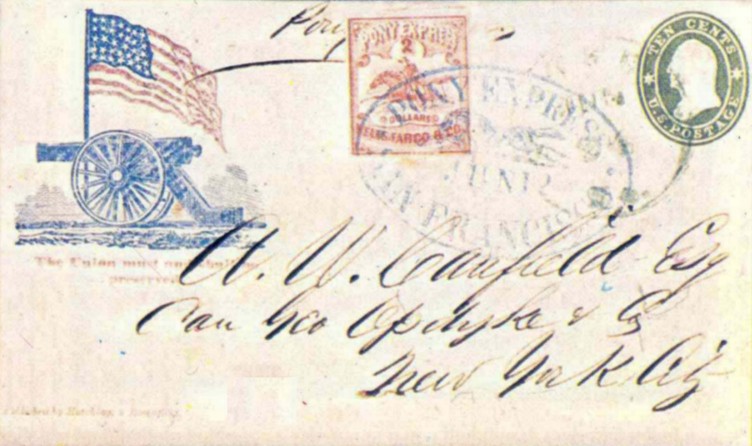 Pony
PONY EXPRESS
2
DOLLARS
WELLS FARGO & CO.
TEN CENTS
U.S. POSTAGE
PONY EXPRESS
JUN 12
SAN FRANCISCO
The Union must and shall be
preserved
W. Canfield Esq
Geo Opdyke & Co
New York City
Published by